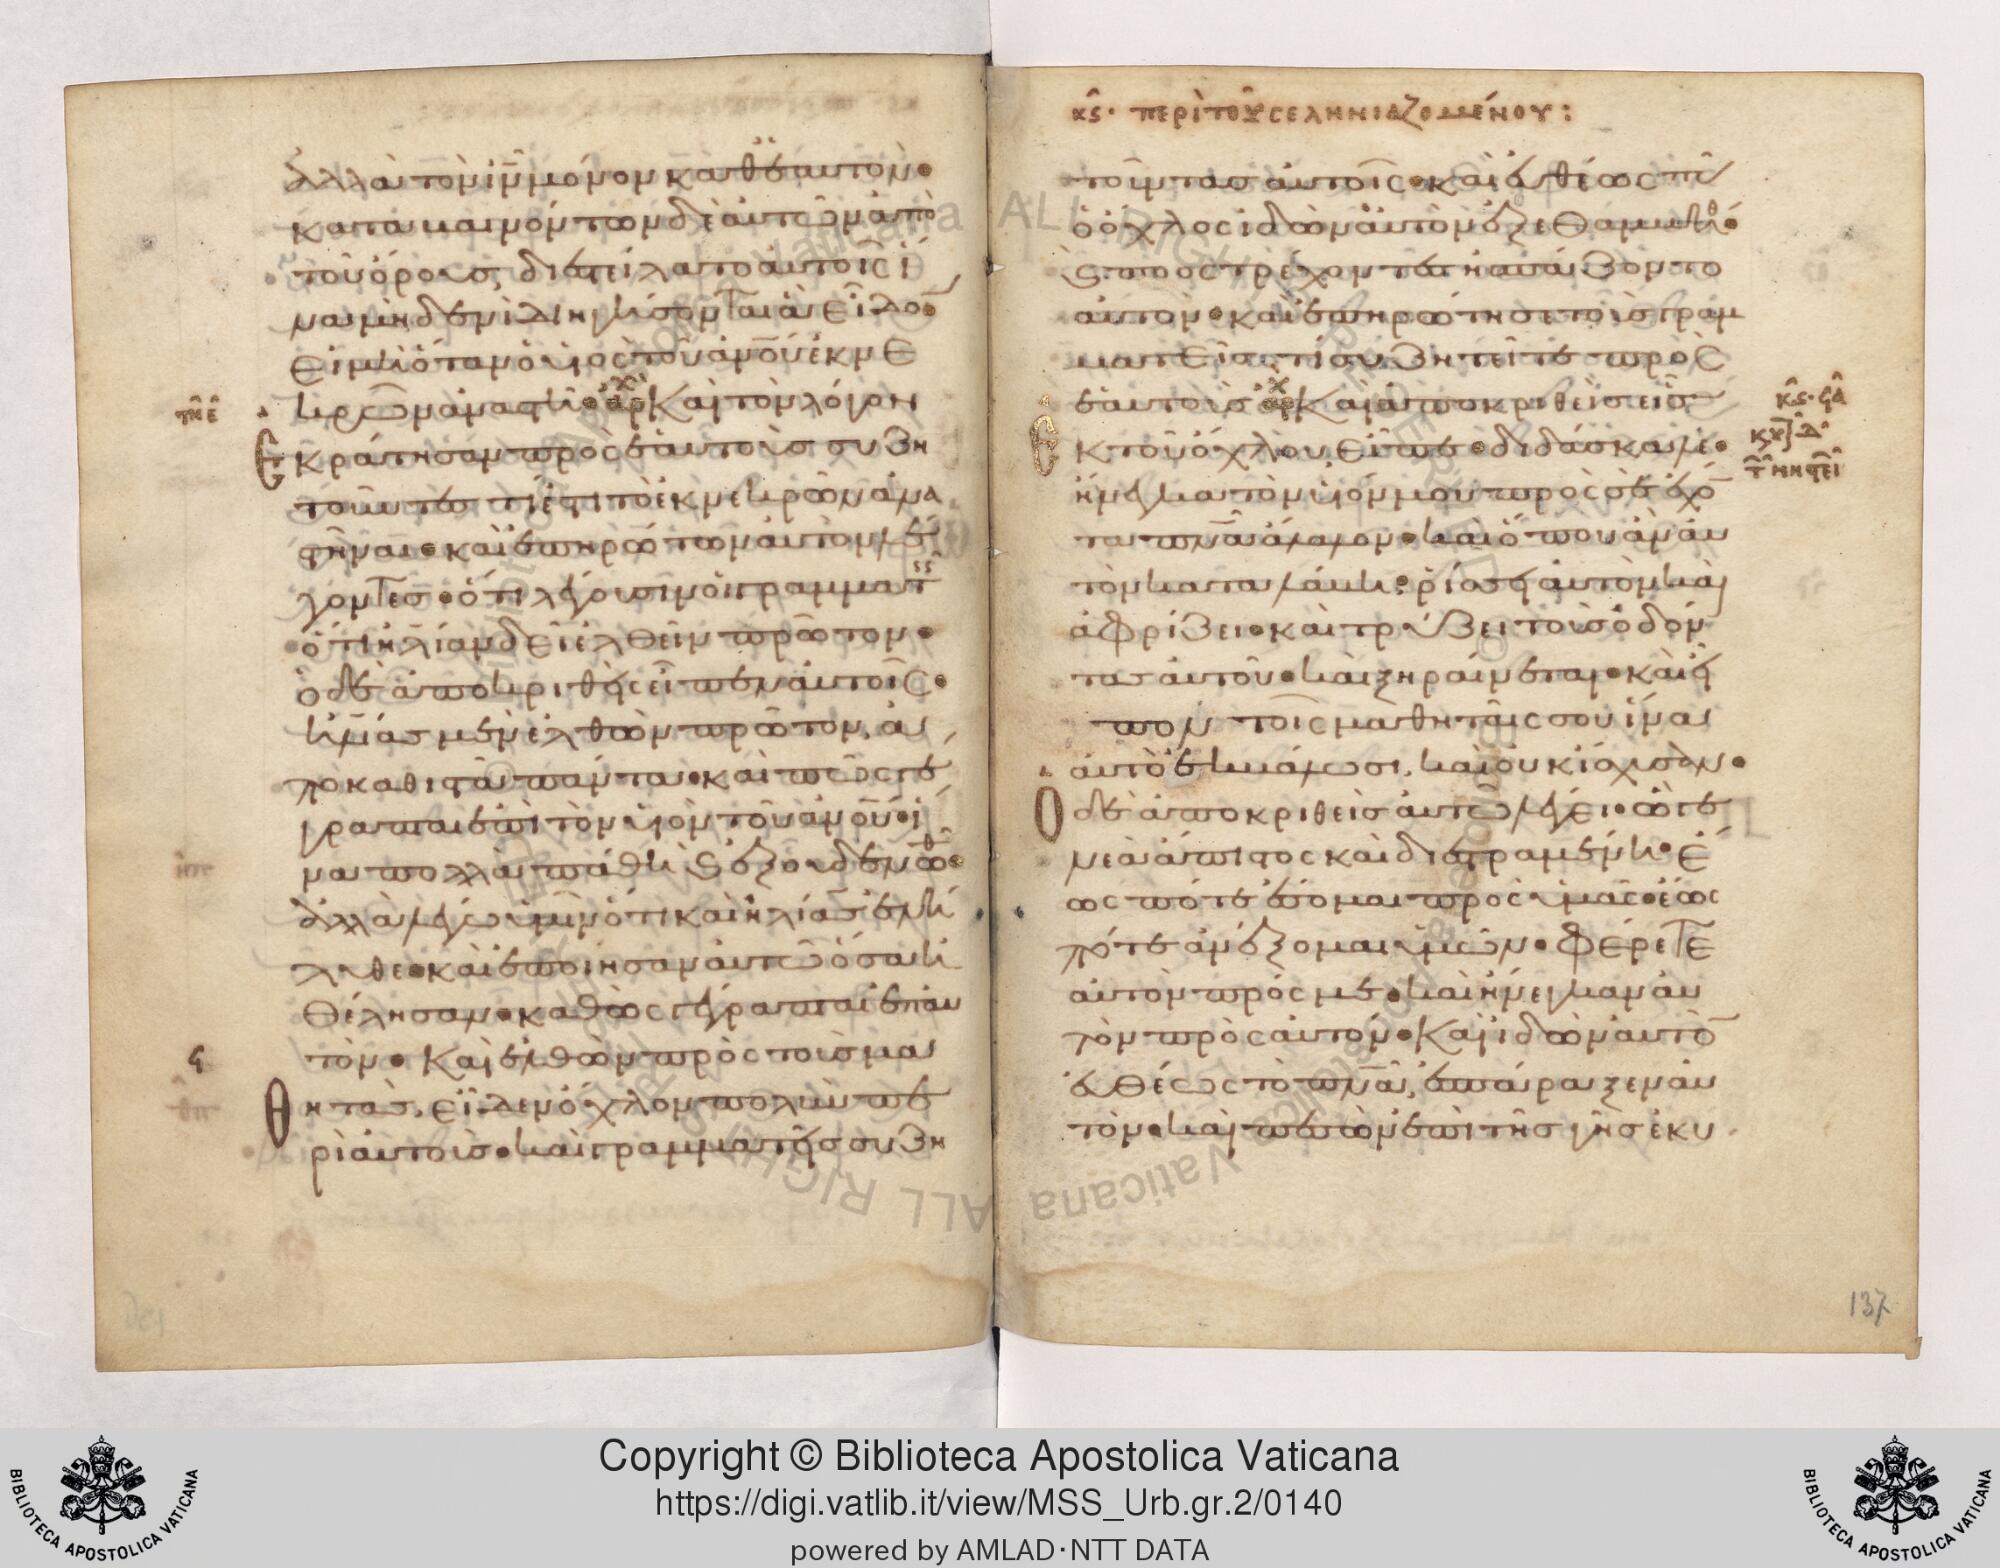 ἀλλὰ τὸν ἰν μόνον μεθ ἑαυτῶν·
καταβαινόντων δὲ αὐτῶν ἀπὸ
τοῦ ὄρους, διεστείλατο αὐτοῖς ἵ
να μηδενὶ διηγήσονται ἃ εἶδον·
εἰ μὴ ὅταν ὁ υἱὸς τοῦ ἀνου ἐκ νε
κρῶν ἀναστῆ· Καὶ τὸν λόγον
ἐκράτησαν πρὸς ἑαυτοὺς συζη
τοῦντες τί ἐστι τὸ ἐκ νεκρῶν ἀνα
στῆναι· καὶ ἐπηρώτων αὐτὸν λέ
γοντες· ὅτι λέγουσιν οἱ γραμματεῖς
ὅτι ἠλίαν δεῖ ἐλθεῖν πρῶτον·
ὁ δὲ ἀποκριθεὶς εἶπεν αὐτοῖς·
ἠλίας μὲν ἐλθὼν πρῶτον, ἀ
ποκαθιστᾶ πάντα· καὶ πῶς γέ
γραπται ἐπὶ τὸν υἱὸν τοῦ ἀνου· ἵ
να πολλὰ πάθη καὶ ἐξουδενωθῆ·
ἀλλὰ λέγω ὑμῖν ὅτι καὶ ἠλίας ἐλή
λυθε· καὶ ἐποίησαν αὐτῶ ὅσα ἠ
θέλησαν· καθὼς γέγραπται ἐπ αὐ
τόν· Καὶ ἐλθὼν πρὸς τοὺς μα
θητὰς, εἶδεν ὄχλον πολὺν πε
ρὶ αὐτούς· καὶ γραμματεῖς συζη
κϛ· περὶ τοῦ σεληνιαζομένου:
τοῦντας αὐτοῖς· καὶ εὐθέως πᾶς
ὁ ὄχλος ἰδὼν αὐτὸν ἐξεθαμβήθη·
καὶ προστρέχοντες ἠσπάζοντο
αὐτόν· καὶ ἐπηρώτησε τοὺς γραμ
ματεῖς, τί συζητεῖτε πρὸς
ἑαυτούς Καὶ ἀποκριθεὶς εἷς
ἐκ τοῦ ὄχλου, εἶπε· διδάσκαλε·
ἤνεγκα τὸν υἱόν μου πρὸς σὲ ἔχον
τα πνα ἄλαλον· καὶ ὅπου ἂν αὐ
τὸν καταλάβη· ῥήσσει αὐτὸν καὶ
ἀφρίζει· καὶ τρίζει τοὺς ὀδόν
τας αὐτοῦ· καὶ ξηραίνεται· καὶ εἶ
πον τοῖς μαθηταῖς σου ἵνα
αὐτὸ ἐκβάλωσι, καὶ οὐκ ἴσχυσαν·
Ὁ δὲ ἀποκριθεὶς αὐτῶ λέγει· ὦ γε
νεὰ ἄπιστος καὶ διεστραμμένη· ἕ
ως πότε ἔσομαι πρὸς ὑμᾶς· ἕως
πότε ἀνέξομαι ὑμῶν· φέρετε
αὐτὸν πρός με· καὶ ἤνεγκαν αὐ
τὸν πρὸς αὐτόν· Καὶ ἰδὼν αὐτὸν
εὐθέως τὸ πνα, ἐσπάραξεν αὐ
τόν· καὶ πεσὼν ἐπὶ τῆς γῆς ἐκυ
137
Copyright © Biblioteca Apostolica Vaticana
https://digi.vatlib.it/view/MSS_Urb.gr.2/0140
powered by AMLAD·NTT DATA
BIBLIOTECA APOSTOLICA VATICANA
BIBLIOTECA APOSTOLICA VATICANA